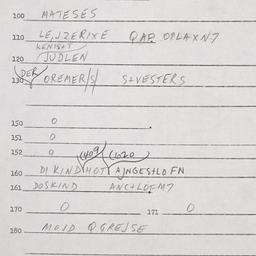 100 MATESES
110 LE,JZERIXE QAP OPLAXN7
KENISHT
120 JUDLEN
DER
130 OREMER/S/ S+VESTERS
150 0
151 0
152 0 (409) (420)
160 DI KIND HOT AJNGESHLOFN
161 DOSKIND ANC+LOFM7
170 0 171 0
180 MOID QGREJSE